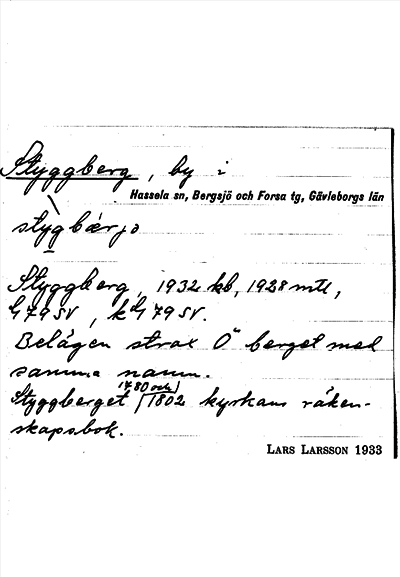 Styggberg, by i
Hassela sn, Bergsjö och Forsa tg, Gävleborgs län
stygbærjə
Styggberg, 1932 kb, 1928 mtl,
G79SV, kG79SV.
Belägen strax Ö berget med
samma namn.
Styggberget 1780 och 1802 kyrkans räken-
skapsbok.
LARS LARSSON 1933